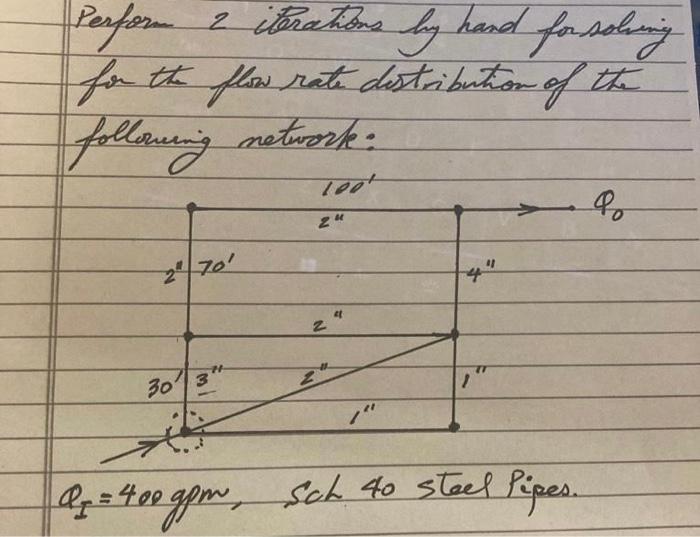 Perform 2 iterations by hand for solving
for the flow rate distribution of the
following network:
100'
2"
Q₀
2" 70'
4"
2"
30' 3"
2"
1"
1"
Q_I = 400 gpm, Sch 40 steel Pipes.